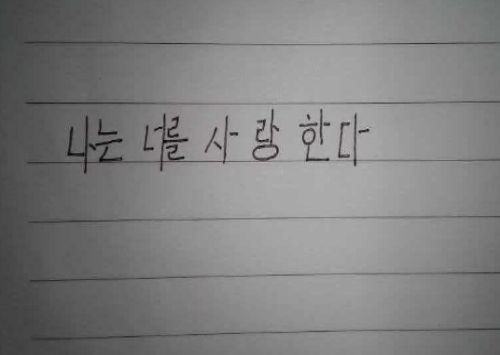 나는 너를 사랑한다